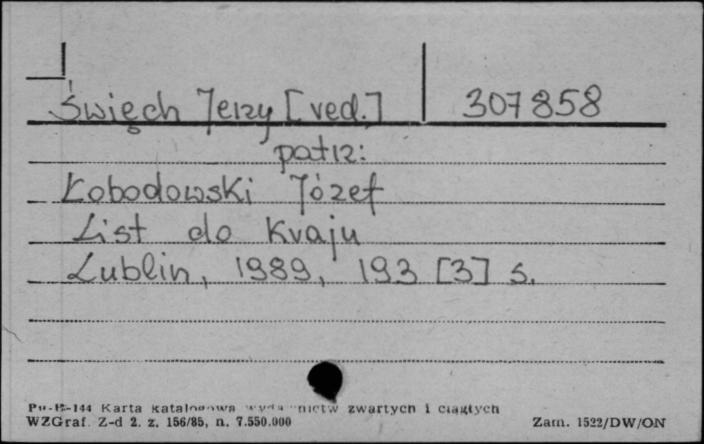 Święch Jerzy [red.] 307858
patrz:
Łobodowski Józef
List do Kraju
Lublin, 1989, 193 [3] s.
Pu-B-144 Karta katalogowa wydawnictw zwartych i ciągłych
WZGraf. Z-d 2. z. 156/85, n. 7.550.000 Zam. 1522/DW/ON